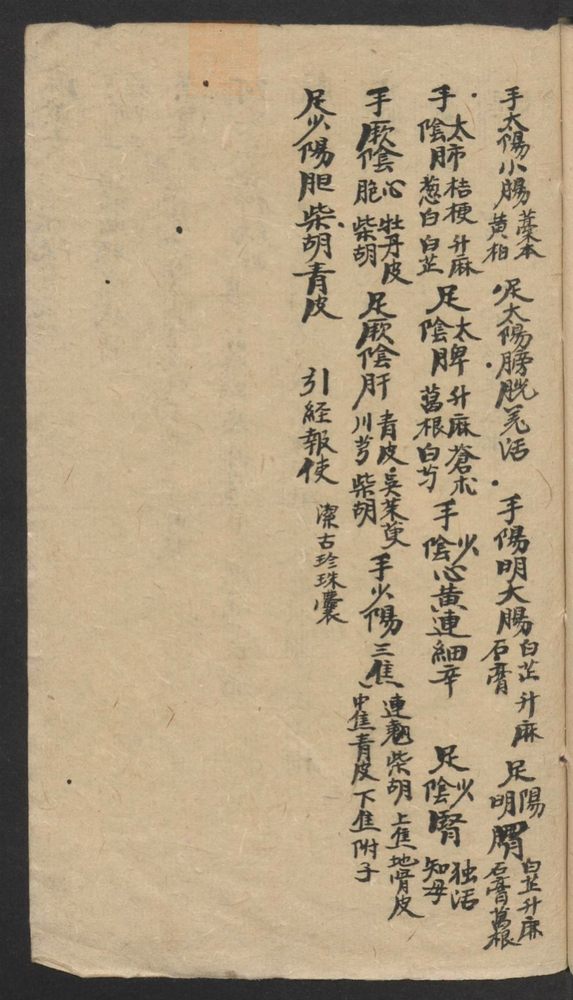 手太陽小腸 藁本 黄柏 足太陽膀胱 羌活 手陽明大腸 白芷 升麻 石膏 足陽明胃 白芷 升麻 石膏 葛根
手太陰肺 桔梗 升麻 葱白 白芷 足太陰脾 升麻 蒼朮 葛根 白芍 手少陰心 黄連 細辛 足少陰腎 独活 知母
手厥陰心胞 牡丹皮 柴胡 足厥陰肝 青皮 吳茱萸 川芎 柴胡 手少陽三焦 連翹 柴胡 上焦地骨皮 中焦青皮 下焦附子
足少陽胆 柴胡 青皮 引経報使 潔古珍珠囊